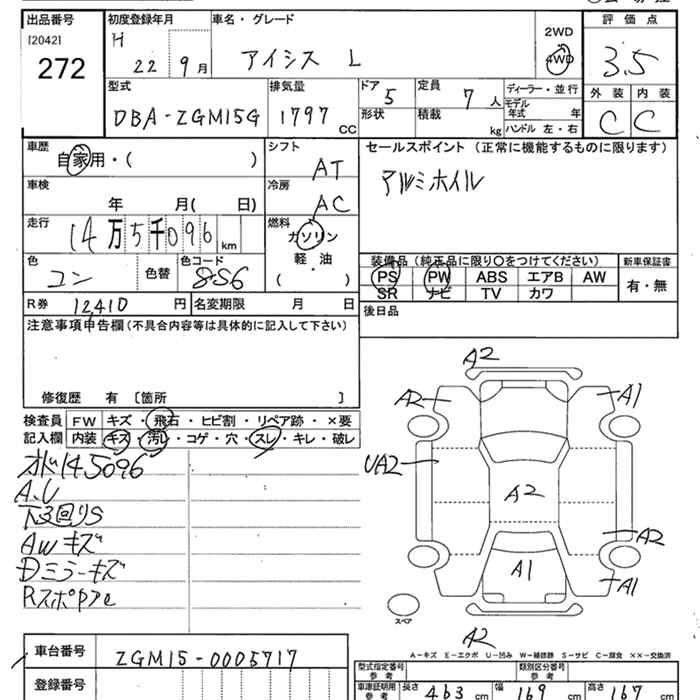 出品番号 初度登録年月 車名・グレード 評価点
[2042]
272
H 22 9月 アイシス L 2WD 4WD 3.5
型式 排気量 ドア 5 定員 7人 ディーラー・並行 外装 内装
DBA-ZGM15G 1797 CC 形状 積載 kg モデル年式 年 ハンドル 左・右 C C
車歴 シフト セールスポイント (正常に機能するものに限ります)
自家用・( ) AT アルミホイル
車検 冷房
年 月( 日) AC
走行 燃料
14万5千096 km ガソリン
軽・油
色 色替 色コード ( ) 装備品 (純正品に限り○をつけてください) 新車保証書
コン PS PW ABS エアB AW 有・無
SR ナビ TV カワ
R券 12,410 円 名変期限 月 日 後日品
注意事項申告欄 (不具合内容等は具体的に記入して下さい)
修復歴 有 [箇所 ]
検査員 FW キズ・飛石・ヒビ割・リペア跡・×要
記入欄 内装 キズ・汚レ・コゲ・穴・スレ・キレ・破レ
145096
下3回りS
AWキズ
Dミラーキズ
A2
A2 A1
UA2
A2
A2
A1 A1
スペア
A2
A-キズ E-エクボ U-凹み W-補修跡 S-サビ C-腐食 XX-交換済
車台番号 ZGM15-0005717
登録番号
型式指定番号 参考 類別区分番号 参考
車庫証明用 参考 長さ 463 cm 幅 169 cm 高さ 167 cm